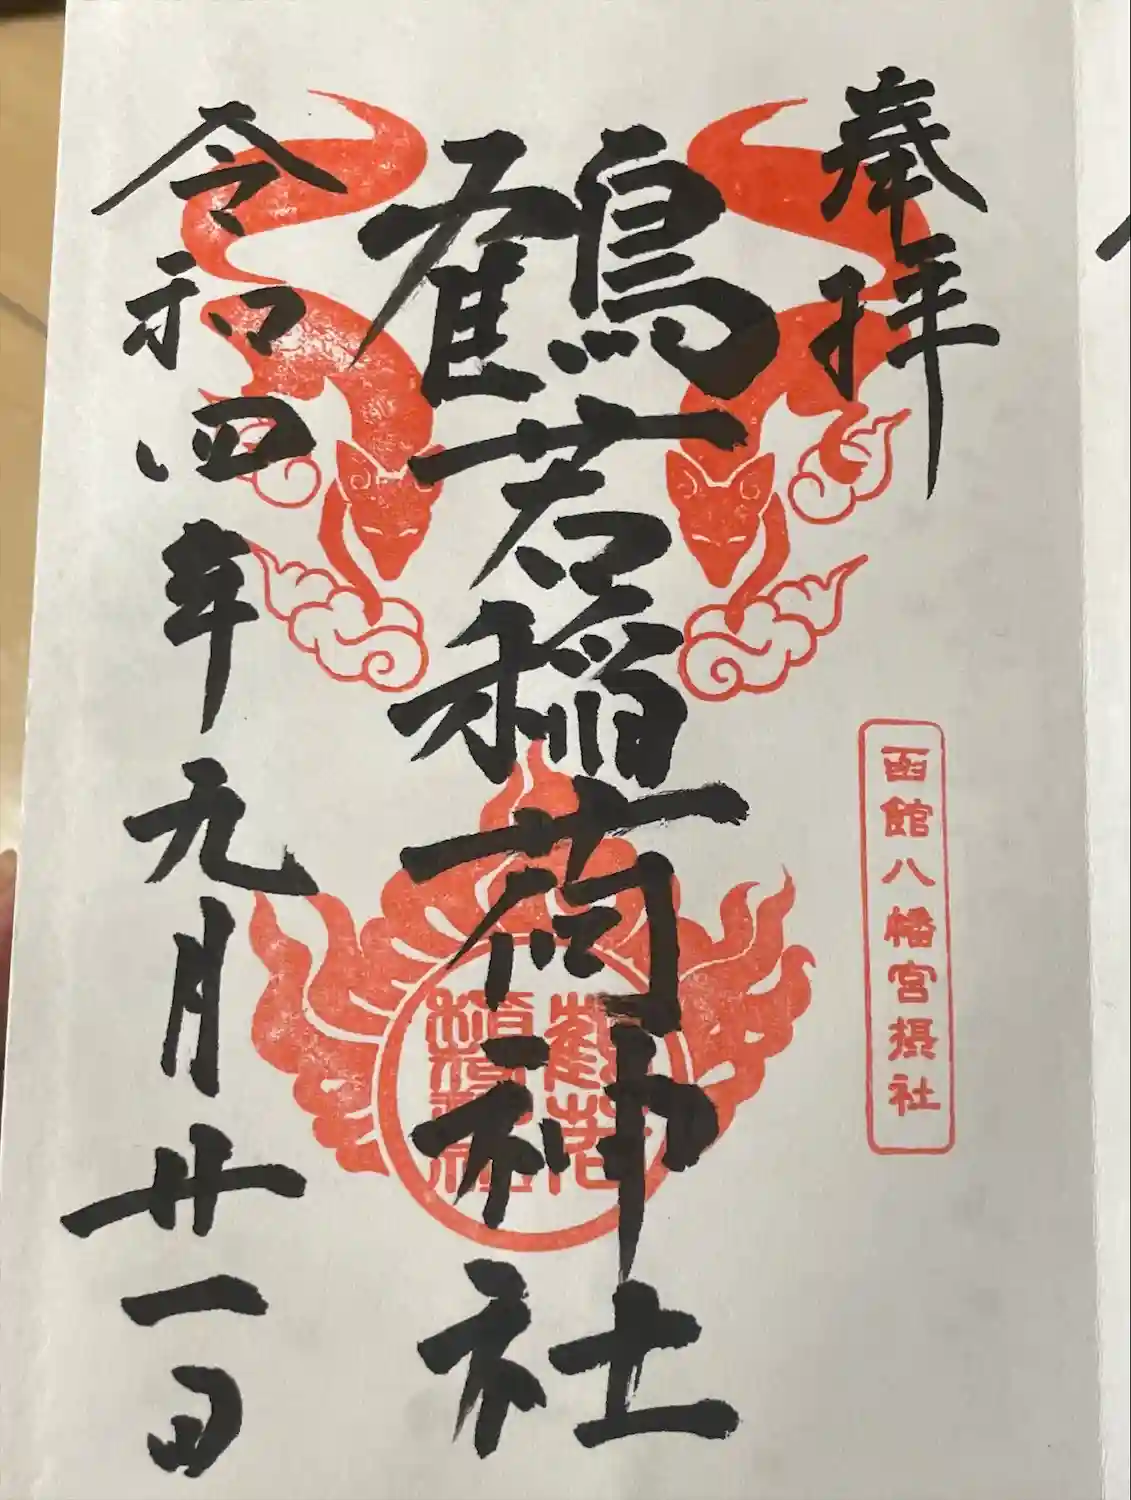 奉拝
函館八幡宮摂社
鶴若稲荷神社
鶴若
稲荷神社
令和四年九月廿一日